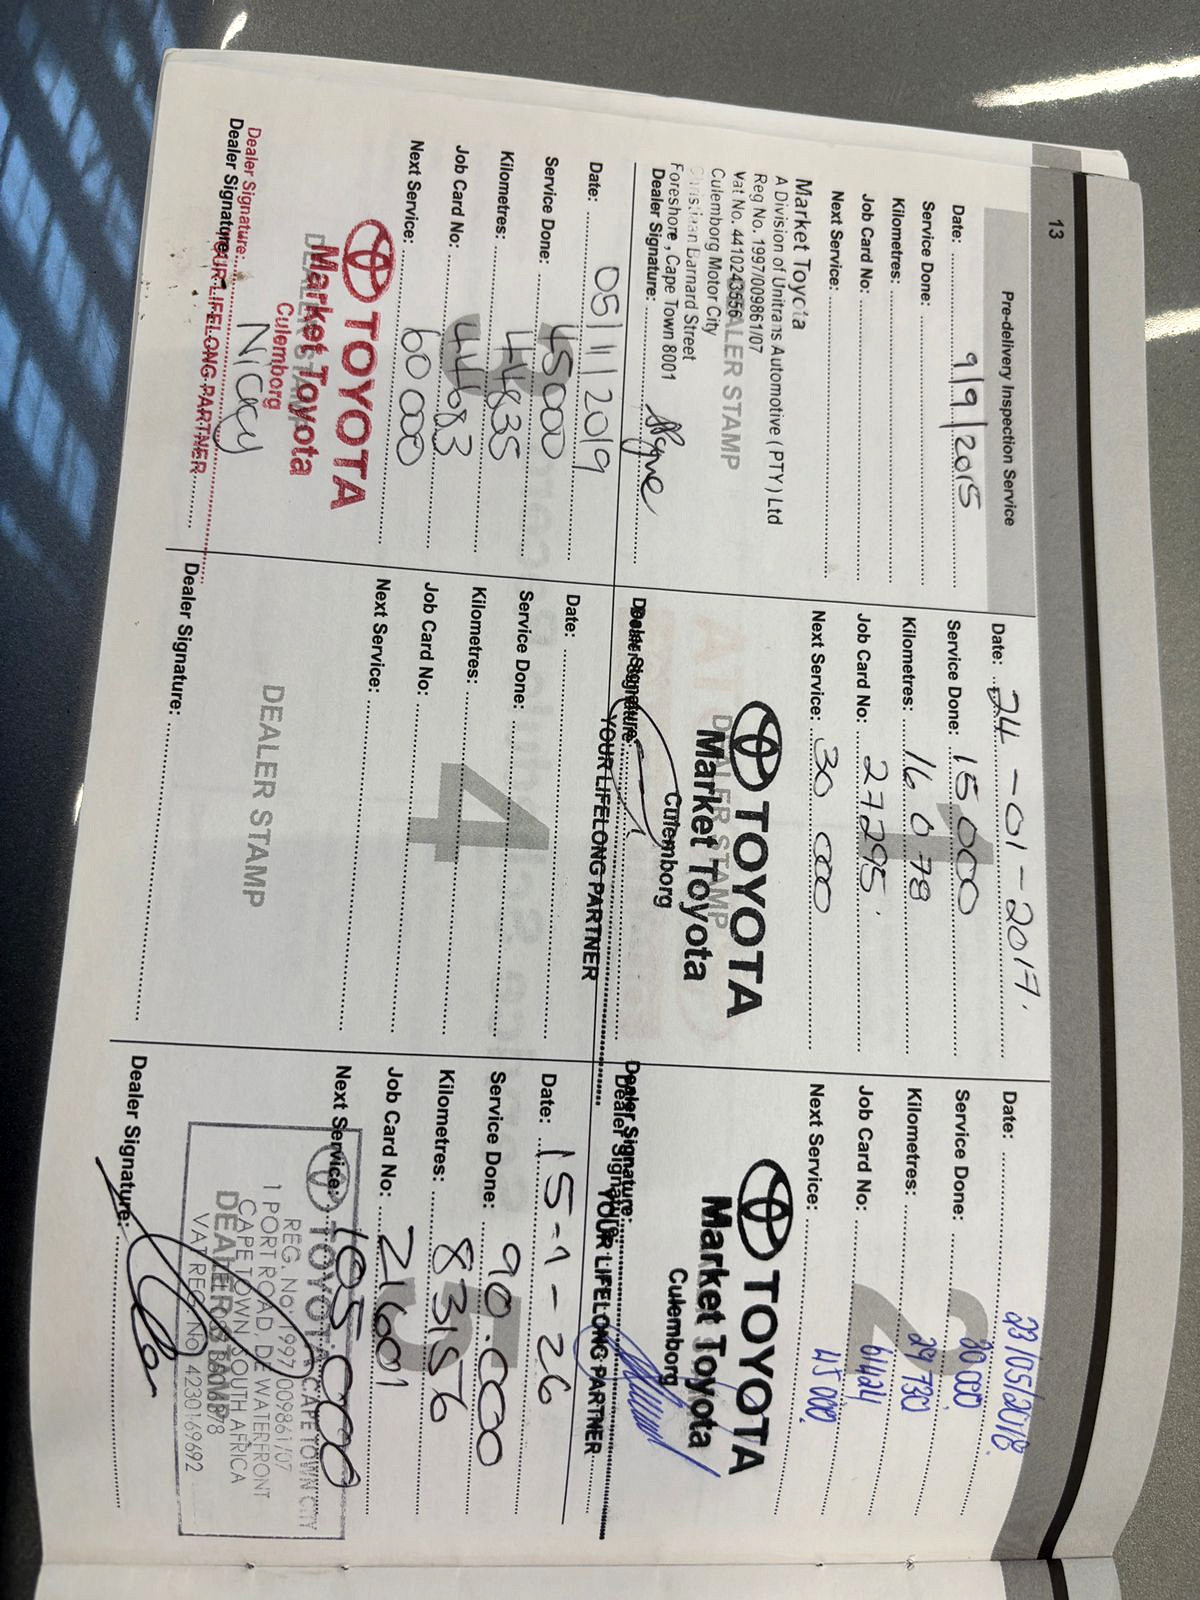 13
Pre-delivery Inspection Service
Date: 9/9/2015
Service Done:
Kilometres:
Job Card No:
Next Service:
Market Toyota
A Division of Unitrans Automotive ( PTY ) Ltd
Reg No. 1997/009861/07
Vat No. 4410243656
DEALER STAMP
Culemborg Motor City
Christiaan Barnard Street
Foreshore , Cape Town 8001
Dealer Signature:
1
Date: 24-01-2017.
Service Done: 15 000
Kilometres: 16 078
Job Card No: 27295.
Next Service: 30 000
TOYOTA
DEALER STAMP
Market Toyota
Culemborg
Dealer Signature:
YOUR LIFELONG PARTNER
2
Date: 23/05/2018
Service Done: 30 000
Kilometres: 29730
Job Card No: 61424
Next Service: 45 000.
TOYOTA
Market Toyota
Culemborg
Dealer Signature:
Dealer Signature:
YOUR LIFELONG PARTNER
Date: 05/11/2019
Service Done: 45000
Kilometres: 44835
Job Card No: 44683
Next Service: 60 000
TOYOTA
DEALER STAMP
Market Toyota
Culemborg
Dealer Signature: Nicky
Dealer Signature:
YOUR LIFELONG PARTNER
4
Date:
Service Done:
Kilometres:
Job Card No:
Next Service:
DEALER STAMP
Dealer Signature:
5
Date: 15-1-26
Service Done: 90.000
Kilometres: 83156
Job Card No: 21601
Next Service: 105.000
TOYOTA CAPE TOWN CITY
REG. No: 1997/009861/07
1 PORT ROAD, DE WATERFRONT
CAPE TOWN, SOUTH AFRICA
DEALER STAMP
VAT REG. No. 4230169692
Dealer Signature: